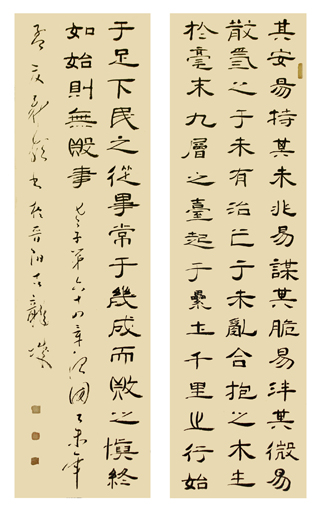 其安易持其未兆易謀其脆易泮其微易
散為之于未有治之于未亂合抱之木生
於毫末九層之臺起于累土千里之行始
于足下民之從事常于幾成而敗之慎終
如始則無敗事 老子第六十四章
孟夏 書於晉陽古龍城